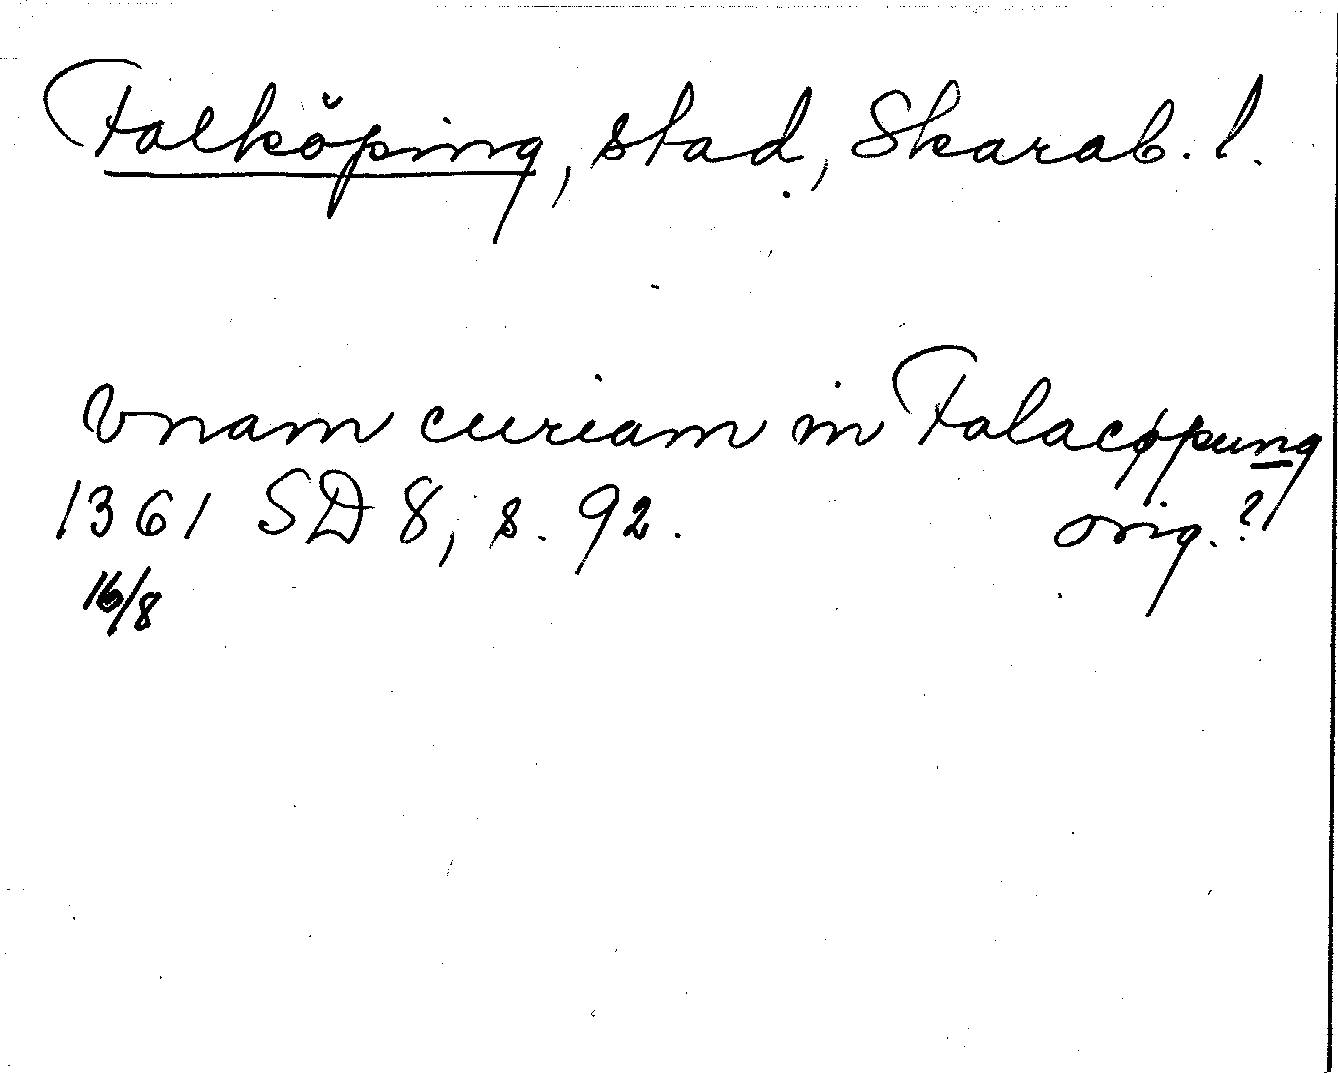 Falköping, stad, Skarab. l.
Vnam curiam in Falacøpung
1361 SD 8, s. 92. orig.?
16/8